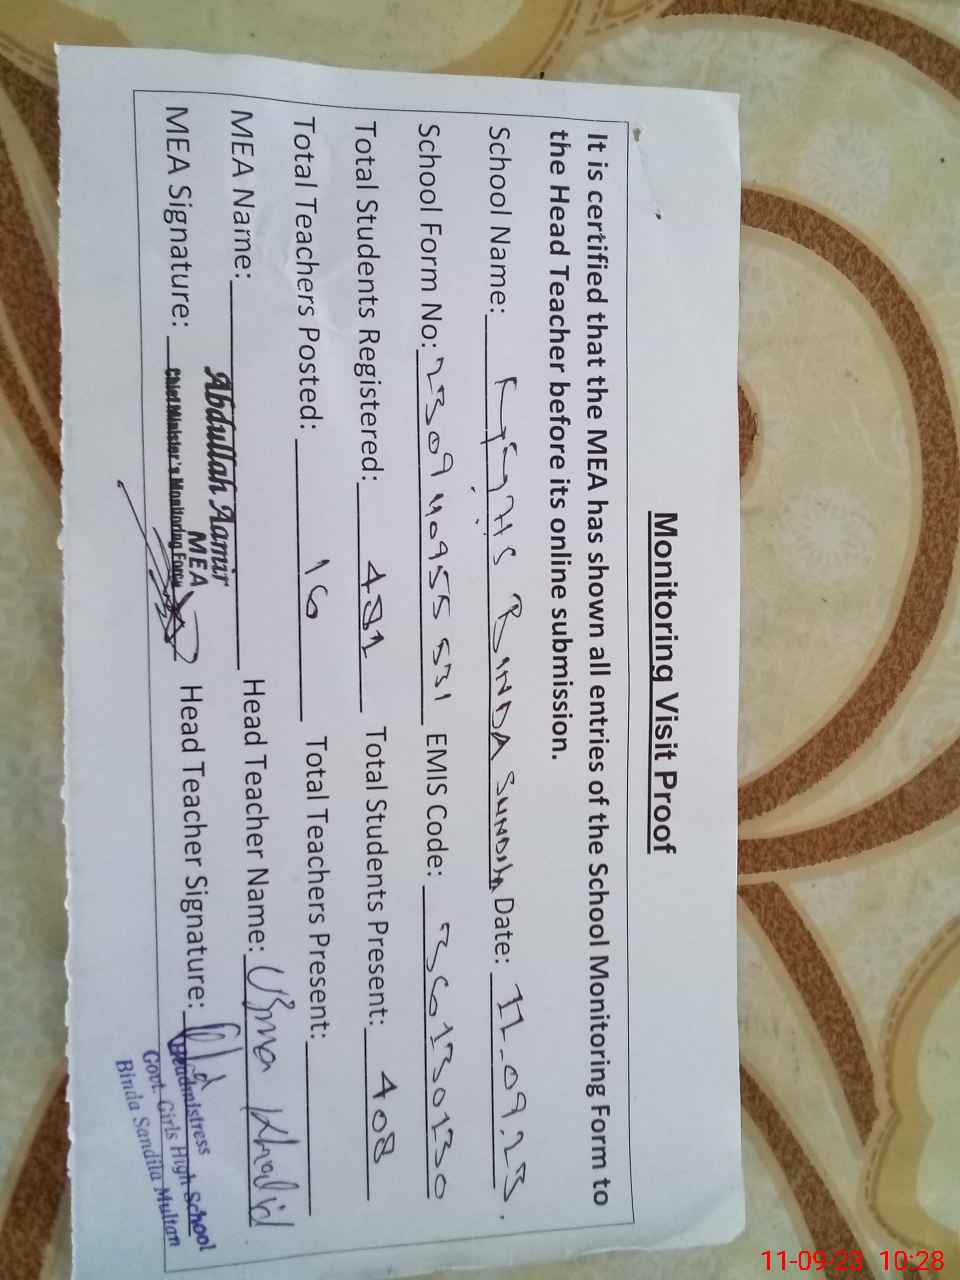 Monitoring Visit Proof
It is certified that the MEA has shown all entries of the School Monitoring Form to
the Head Teacher before its online submission.
School Name: BINDA SUNDILA Date: 11-09-23.
School Form No: EMIS Code: 36130130
Total Students Registered: 481 Total Students Present: 408
Total Teachers Posted: 16 Total Teachers Present:
MEA Name: Abdullah Aamir Head Teacher Name: Uzma Khalid
MEA
MEA Signature: Chief Minister's Monitoring Force Head Teacher Signature:
Headmistress
Govt. Girls High School
Binda Sandila Multan
11-09-23 10:28